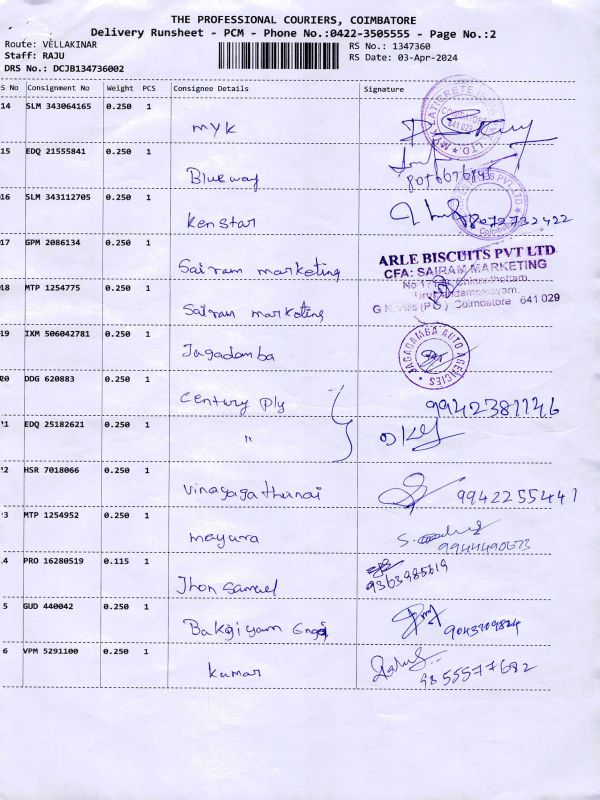 THE PROFESSIONAL COURIERS, COIMBATORE
Delivery Runsheet - PCM - Phone No.:0422-3505555 - Page No.:2
Route: VELLAKINAR
RS No.: 1347360
Staff: RAJU
RS Date: 03-Apr-2024
DRS No.: DCJB134736002
S No Consignment No Weight PCS Consignee Details Signature
14 SLM 343064165 0.250 1
myk
641 029
15 EDQ 21555841 0.250 1
Blueway
16 SLM 343112705 0.250 1
Kenstar
8072732422
17 GPM 2086134 0.250 1
Sairam marketing
ARLE BISCUITS PVT LTD
CFA: SAIRAM MARKETING
18 MTP 1254775 0.250 1
Sairam marketing
Coimbatore 641 029
19 IXM 506042781 0.250 1
Jagadamba
JAGADAMBA AUTO AGENCIES
20 DDG 620883 0.250 1
Century ply
9942381146
21 EDQ 25182621 0.250 1
"
22 HSR 7018066 0.250 1
Vinagagathunai
9942255441
3 MTP 1254952 0.250 1
mayura
9944490673
4 PRO 16280519 0.115 1
Jhon Samuel
9363985619
5 GUD 440042 0.250 1
Bakgiyam
9043209824
6 VPM 5291100 0.250 1
kumar
9855577682